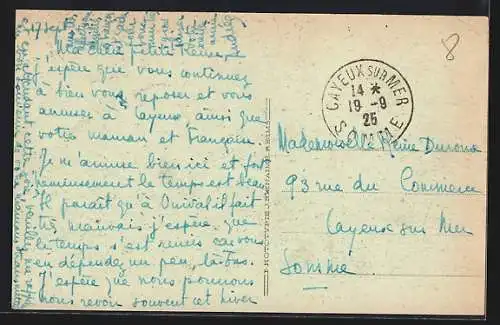 17 sept
Ma chère petite Reine,
J'espère que vous continuez
à bien vous reposer et vous
amuser à Cayeux, ainsi que
votre maman et Françoise.
Je m'amuse bien ici et fort
heureusement le temps est beau
Il paraît qu'à Onival il fait
très mauvais j'espère que
le temps s'est remis car vous
en dépendez un peu, là-bas.
J'espère que nous pourrons
nous revoir souvent cet hiver
8
CAYEUX SUR MER
14 *
19 - 9
25
SOMME
Mademoiselle Reine
93 rue du Commerce
Cayeux sur Mer
Somme